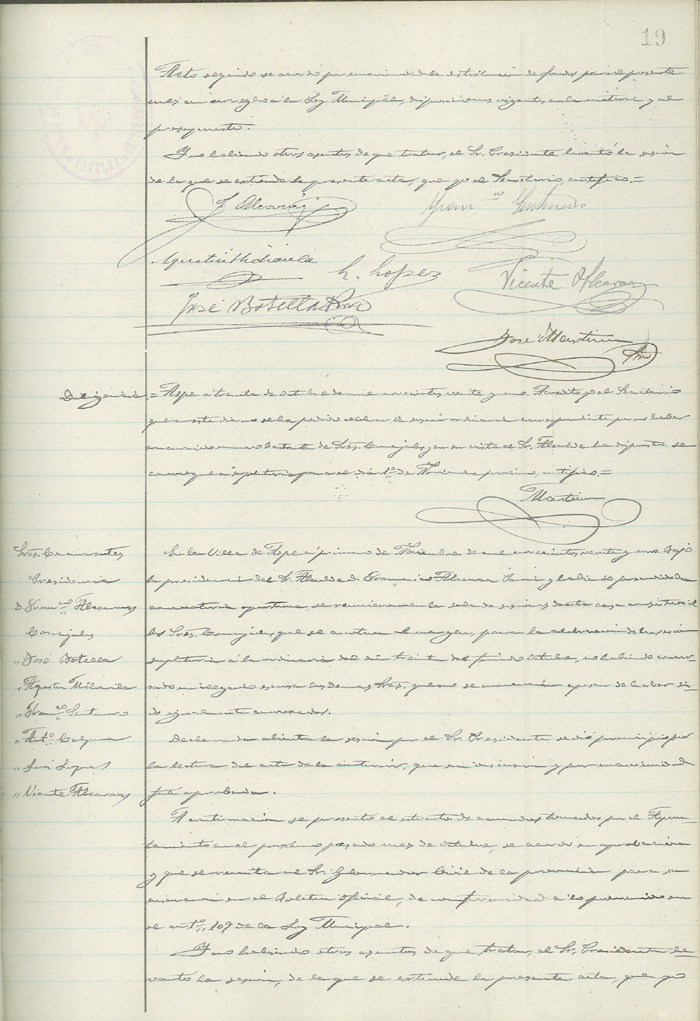 19
Acto seguido se acordó por unanimidad la distribución de fondos para el presente
mes con arreglo á la Ley Municipal, disposiciones vigentes en la materia y al
presupuesto.
Y no habiendo otros asuntos de que tratar, el Sr. Presidente levantó la sesión
de la que se extiende la presente acta, que yo el Secretario, certifico.=
F. Alcaraz
Agustin Mira
H. Lopez
Vicente Alcaraz
José Botella
José Martinez
Diligencia = Aspe á treinta de Octubre de mil novecientos veinte y uno. Acredito yo el Secretario
que en este dia no se ha podido celebrar la sesión ordinaria correspondiente por no haber
concurrido número bastante de Sres. Concejales, en su vista el Sr. Alcalde ha dispuesto se
convoque á supletoria para el día 1º de Noviembre próximo, certifico.=
Martinez
Sres. Concurrentes
Presidencia
D. Franco. Alcaraz
Concejales
" José Botella
" Agustin
" Franco.
" Anto.
" Luis Lopez
" Vicente Alcaraz
En la Villa de Aspe á primero de Noviembre de mil novecientos veinte y uno. Bajo
la presidencia del Sr. Alcalde D. Francisco Alcaraz y habiendo precedido
convocatoria oportuna, se reunieron en la sala de sesiones de esta casa consistorial
los Sres. Concejales que se anotan al margen, para la celebración de la sesión
supletoria á la ordinaria del dia treinta del finido Octubre, no habiendo concu-
rrido ni alegado excusa los demas Sres. que no se mencionan apesar de haber si-
do igualmente convocados.
Declarada abierta la sesión por el Sr. Presidente, se dió principio por
la lectura del acta de la anterior, que por unanimidad
fué aprobada.
A continuación se presentó el extracto de acuerdos tomados por el Ayun-
tamiento en el próximo pasado mes de Octubre, se acordó su aprobación
y que se remita al Sr. Gobernador Civil de la provincia para su
inserción en el Boletin Oficial, de conformidad á lo prevenido en
el artº. 109 de la Ley Municipal.
Y no habiendo otros asuntos de que tratar, el Sr. Presidente le-
vantó la sesión, de la que se extiende la presente acta, que yo